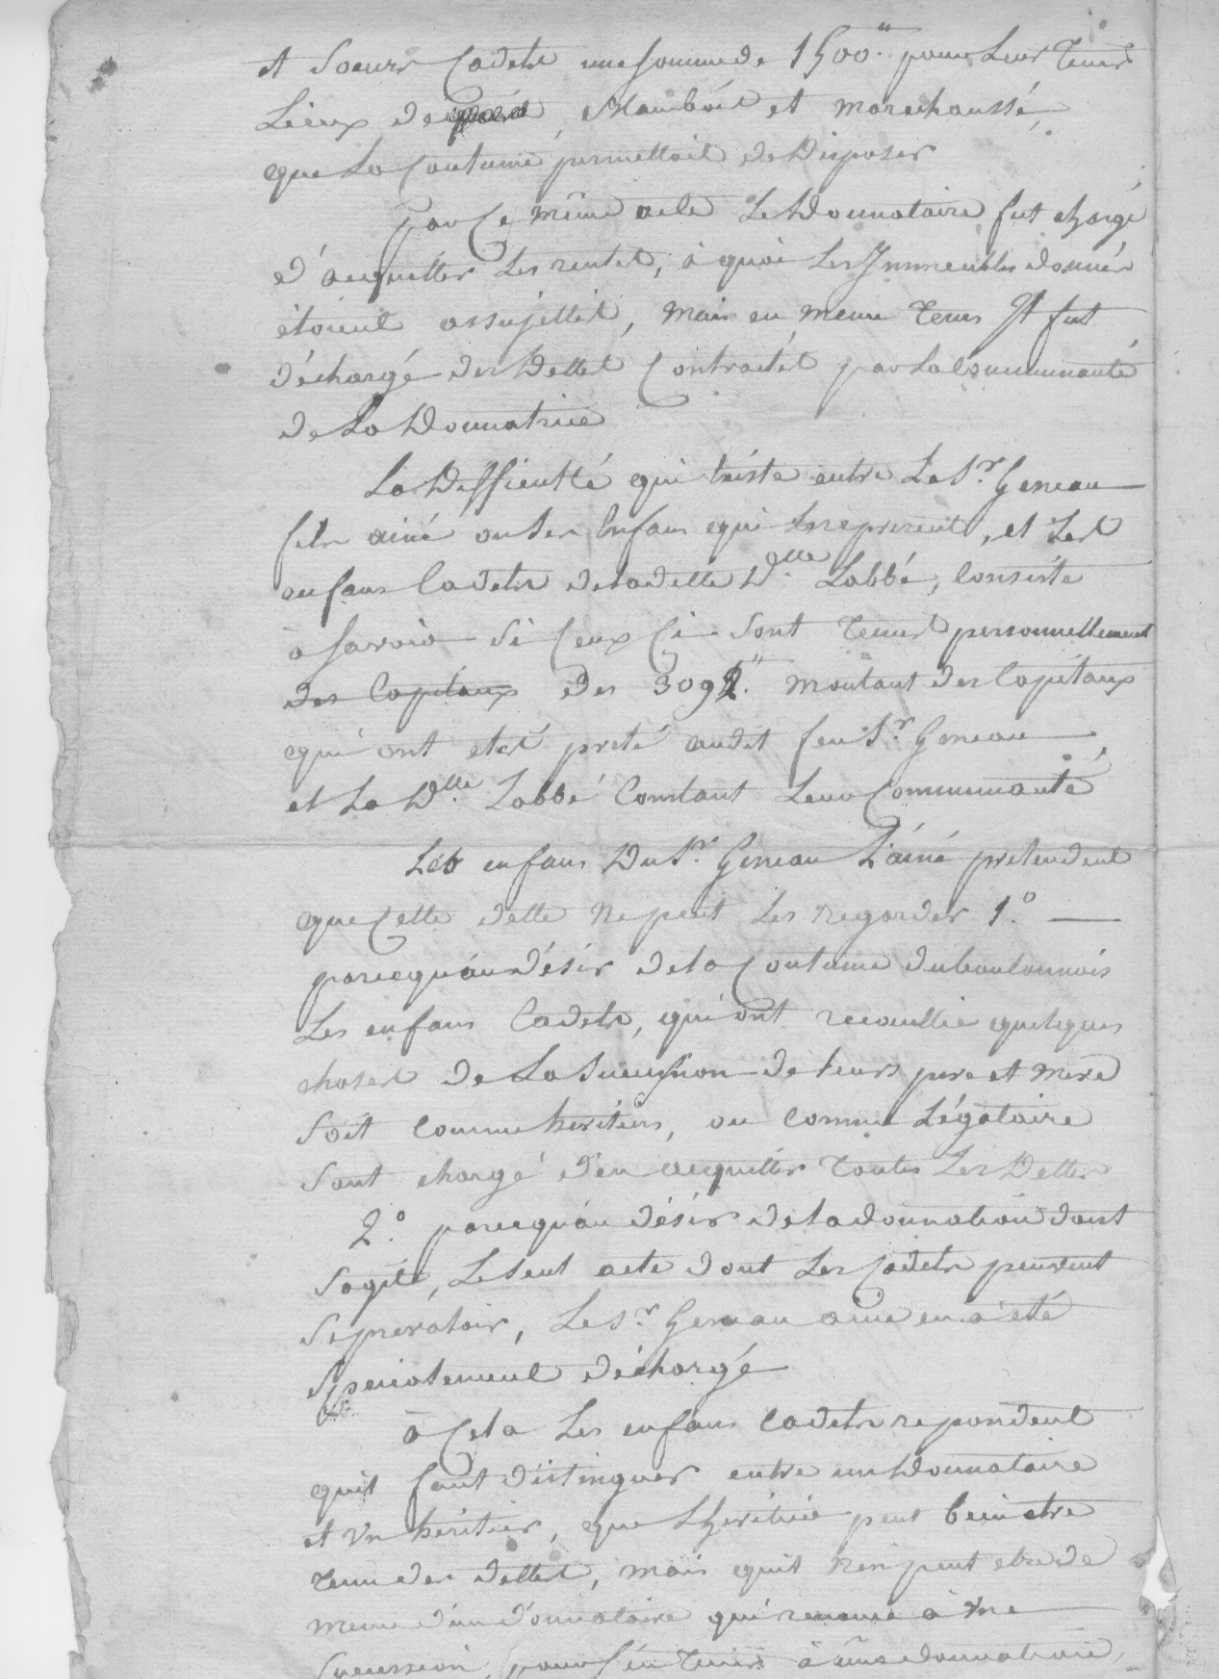 et Soeurs Cadets une somme de 1500.ᵗᵗ pour Leur Tenir
Lieux de , Mambour et marechaussé,
que La Coutume permettoit de Disposer
par Ce même acte Le Donnataire fut chargé
d'acquitter Les rentes, à quoi Les Immeubles donnés
étoient assujettis, mais en meme tems Il fut
déchargé des Dettes Contractés par La Communauté
de La Donnatrice
La Difficulté qui existe entre Le S.ʳ Geneau
fils ainé ou ses Enfans qui Le represent, et Les
enfans Cadets de ladette D.ˡˡᵉ Labbé, Consiste
à savoir Si Ceux Ci Sont Tenus personnellement
des Capitaux des 3092.ᵗᵗ montant des Capitaux
qui ont eté preté audit feu S.ʳ Geneau
et La D.ˡˡᵉ Labbé Constant Leur Communauté
Les enfans Du S.ʳ Geneau L'ainé pretendent
que Cette dette ne peut Les regarder 1.º
parcequ'au désir de la Coutume du boulonnois
Les enfans Cadets, qui ont recueillie quelques
choses de La Sucession de leurs pere et mere
Soit comme heritiers, ou comme Légataire
Sont chargé d'en acquitter toutes Les Dettes
2.º parcequ'au désir de la donnation dont
Sagite, Le seul acte dont Les Cadets peuvent
Se prevaloir, Le S.ʳ Geneau ainé en a été
Specialement déchargé
à Cela Les enfans Cadets repondent
quil faut distinguer entre un Donnataire
et un héritier, que Lheritier peut bien etre
Tenu des dettes, mais quil n'en peut etre de
meme d'un donnataire qui renonce à une
Sucession pour s'en Tenir à une donnation,